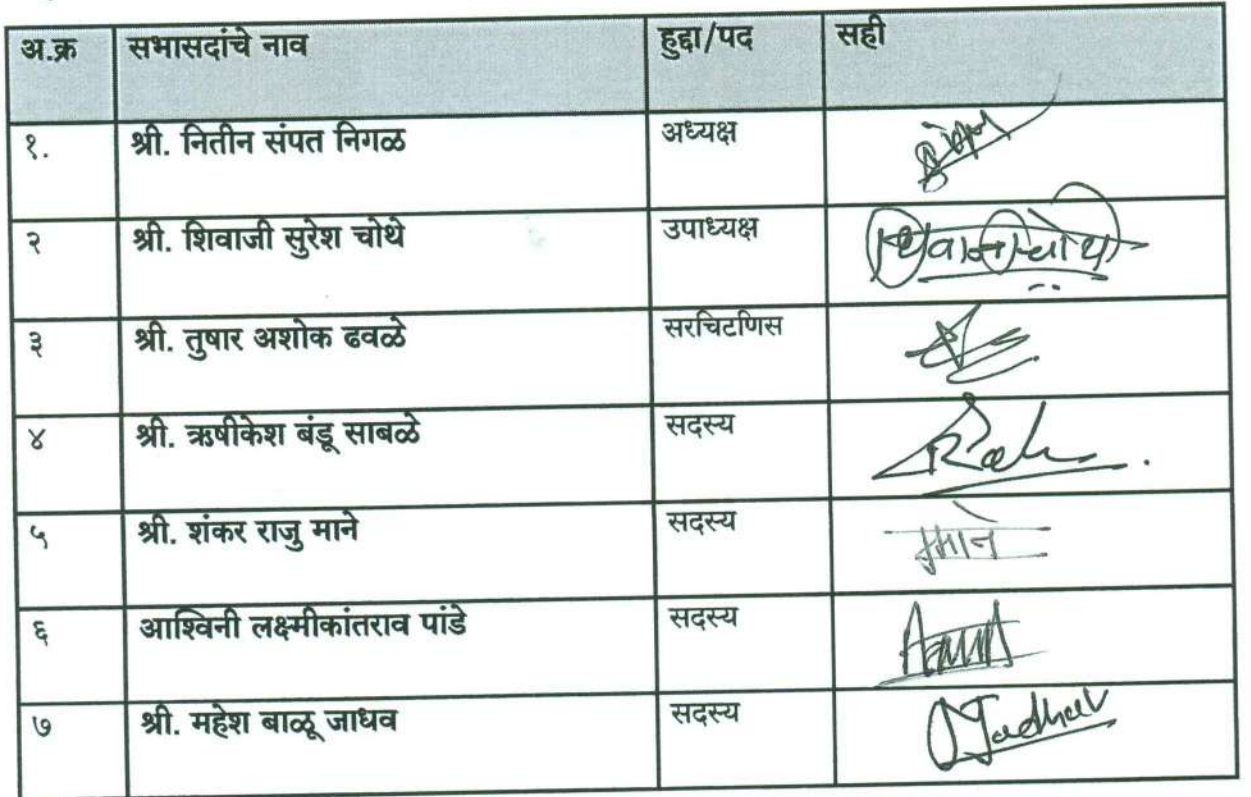 अ.क्र सभासदांचे नाव हुद्दा/पद सही
१. श्री. नितीन संपत निगळ अध्यक्ष
२ श्री. शिवाजी सुरेश चोथे उपाध्यक्ष
३ श्री. तुषार अशोक ढवळे सरचिटणिस
४ श्री. ऋषीकेश बंडू साबळे सदस्य
५ श्री. शंकर राजु माने सदस्य माने
६ आश्विनी लक्ष्मीकांतराव पांडे सदस्य
७ श्री. महेश बाळू जाधव सदस्य Jadhav